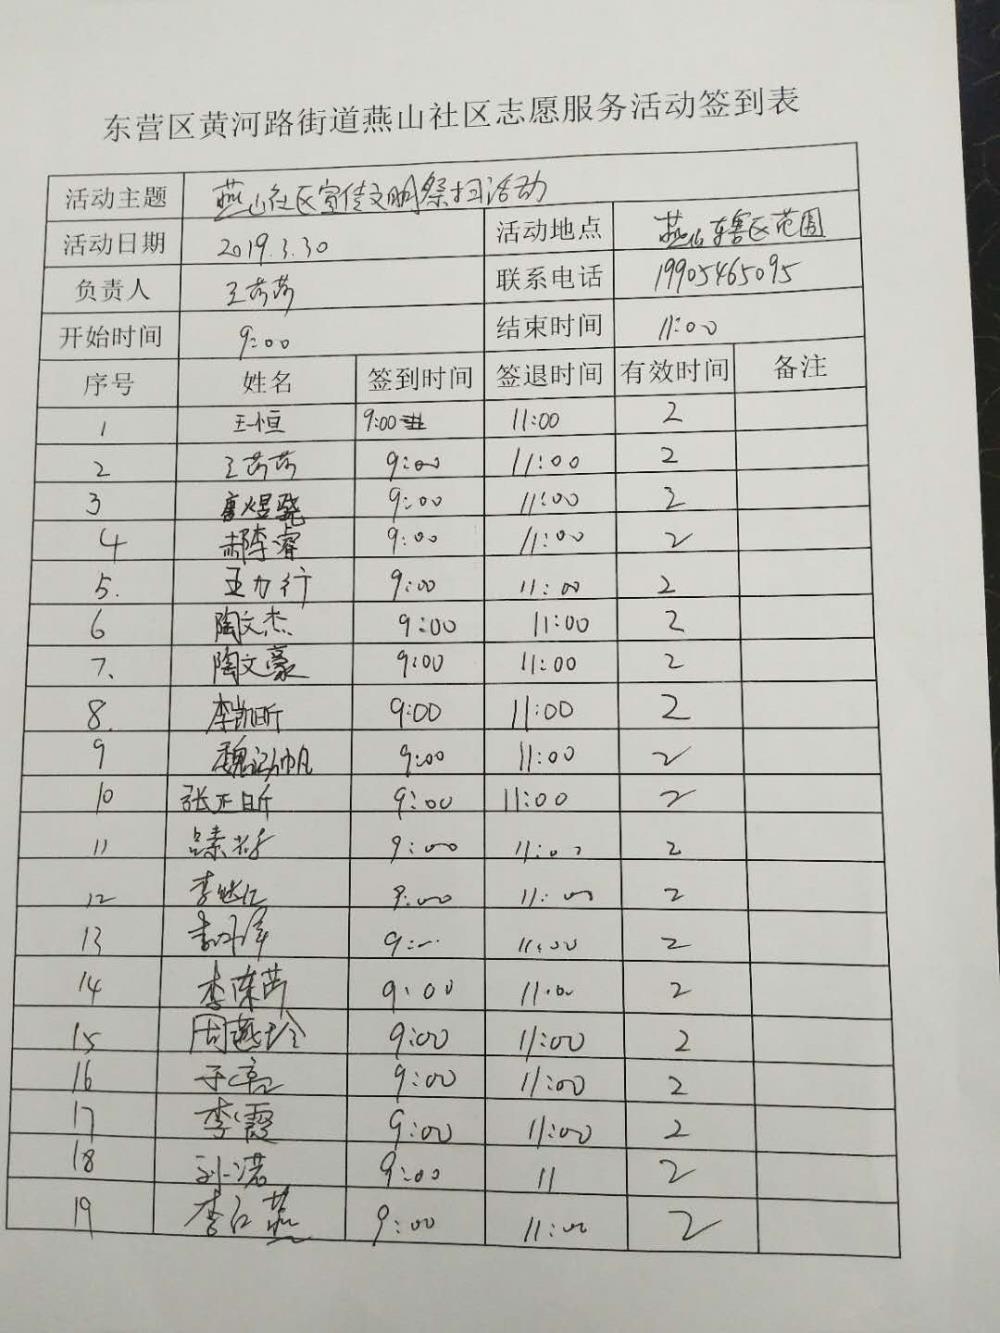 东营区黄河路街道燕山社区志愿服务活动签到表
活动主题 燕山社区宣传文明祭扫活动
活动日期 2019.3.30 活动地点 燕山辖区范围
负责人 王芮芮 联系电话 19905465095
开始时间 9:00 结束时间 11:00
序号 姓名 签到时间 签退时间 有效时间 备注
1 王恒 9:00 11:00 2
2 王芮芮 9:00 11:00 2
3 唐煜骁 9:00 11:00 2
4 郝李睿 9:00 11:00 2
5. 王力行 9:00 11:00 2
6 陶文杰 9:00 11:00 2
7. 陶文豪 9:00 11:00 2
8. 李凯昕 9:00 11:00 2
9 魏 帆 9:00 11:00 2
10 张正昕 9:00 11:00 2
11 9:00 11:00 2
12 李 仁 9:00 11:00 2
13 9:00 11:00 2
14 李 9:00 11:00 2
15 周燕玲 9:00 11:00 2
16 于 9:00 11:00 2
17 李霞 9:00 11:00 2
18 孙 9:00 11 2
19 李红燕 9:00 11:00 2